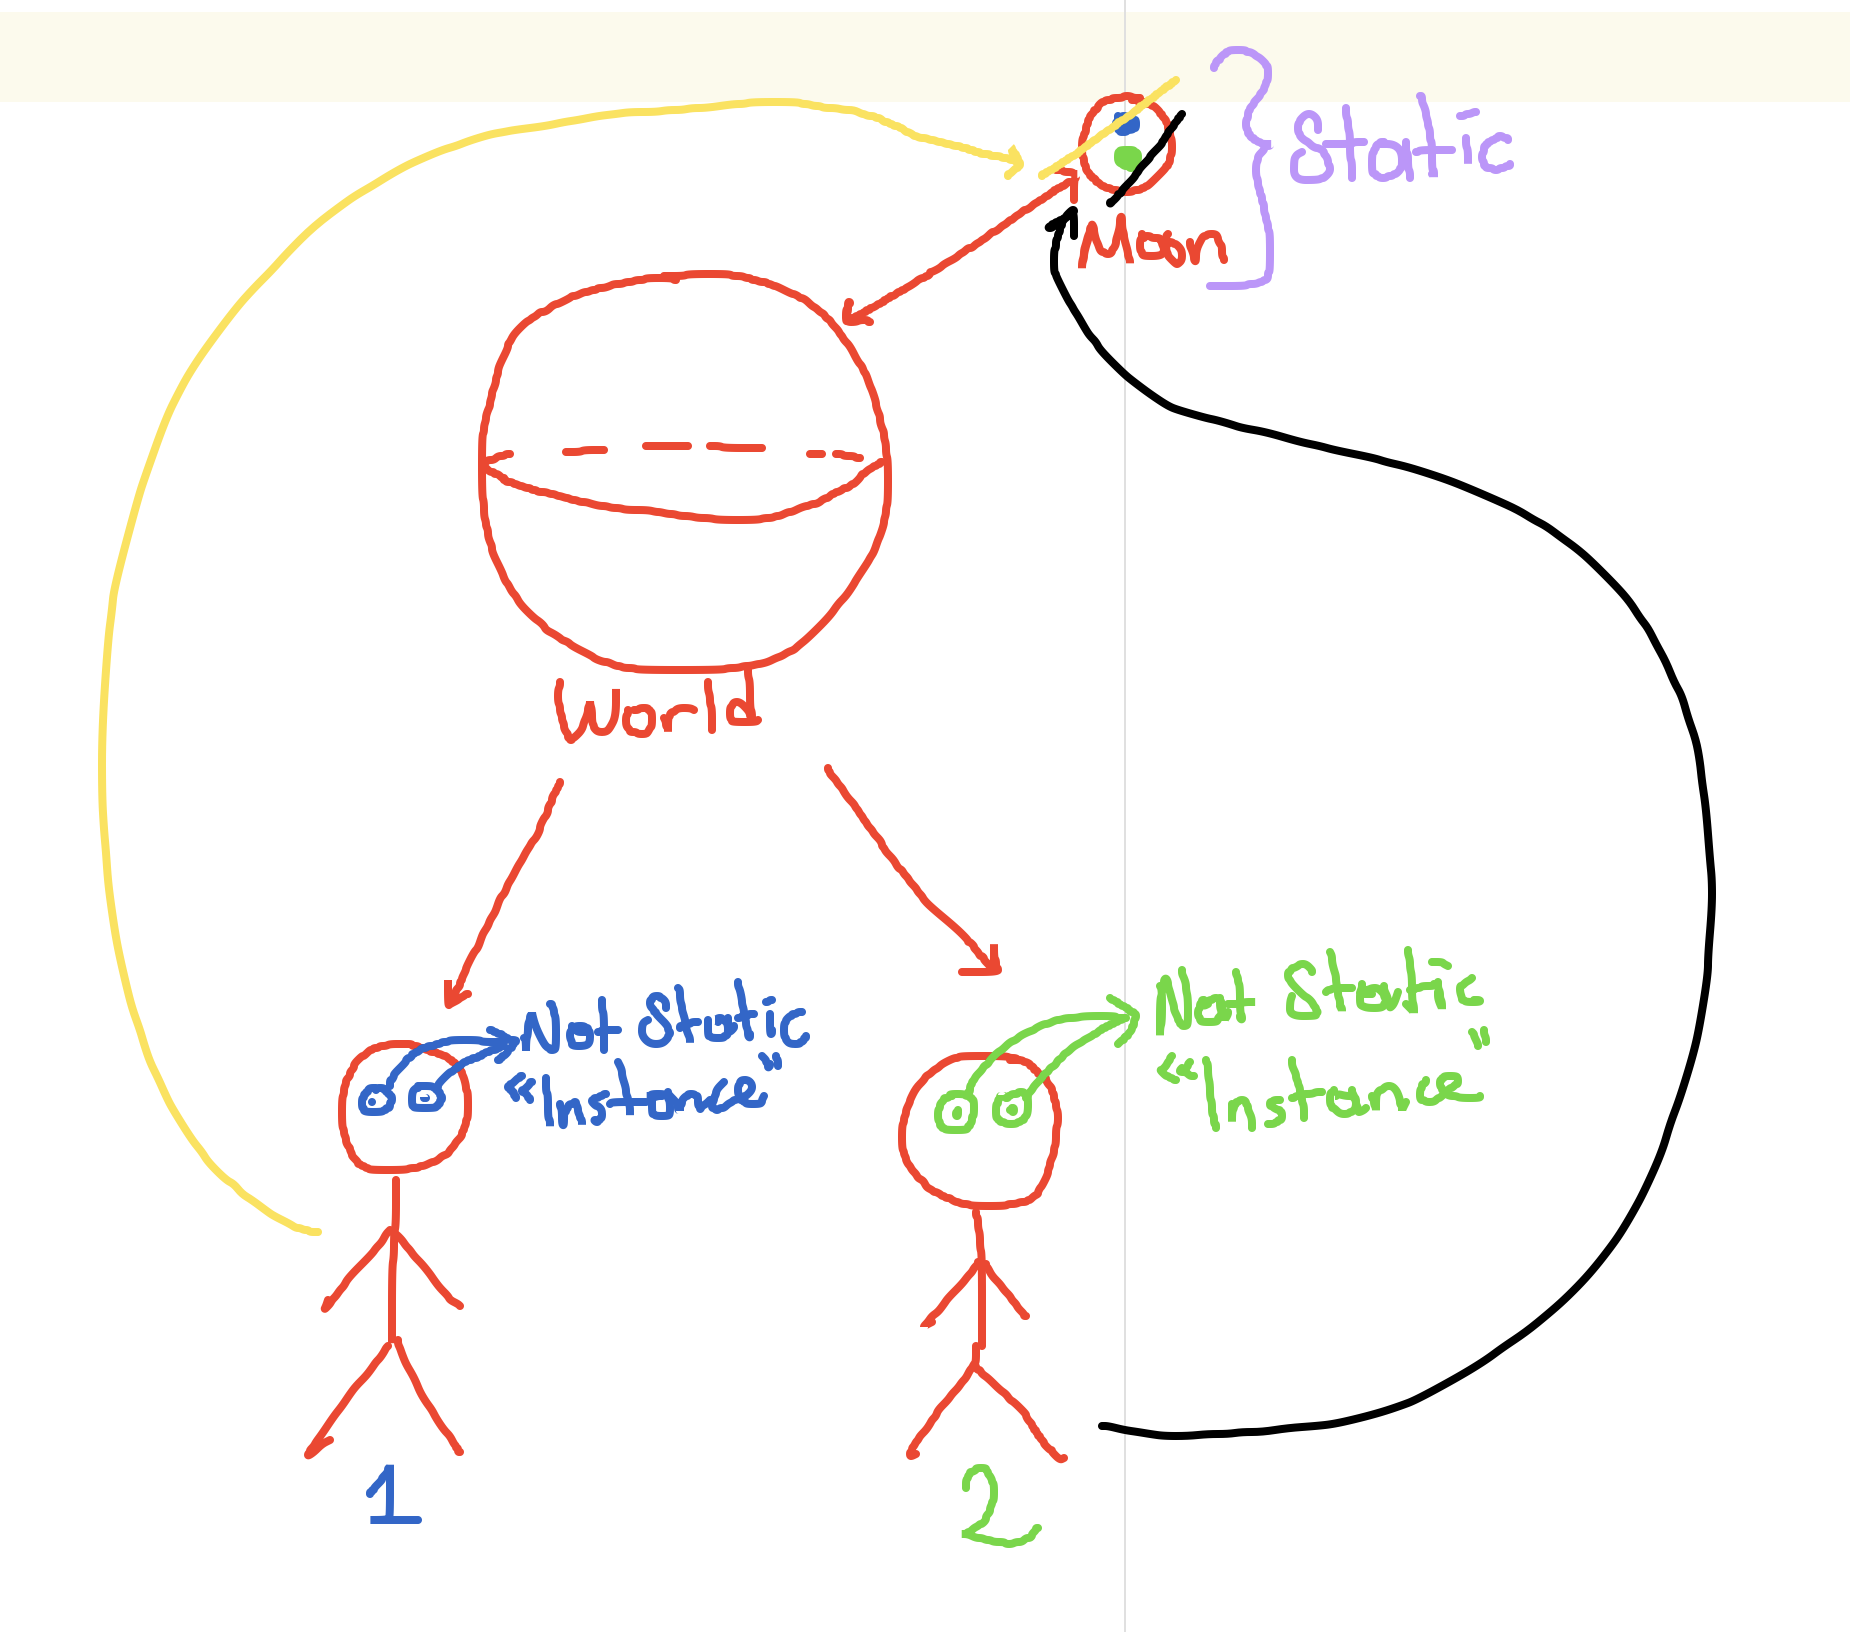 Static
Moon
World
Not Static
"Instance"
Not Static
"Instance"
1
2